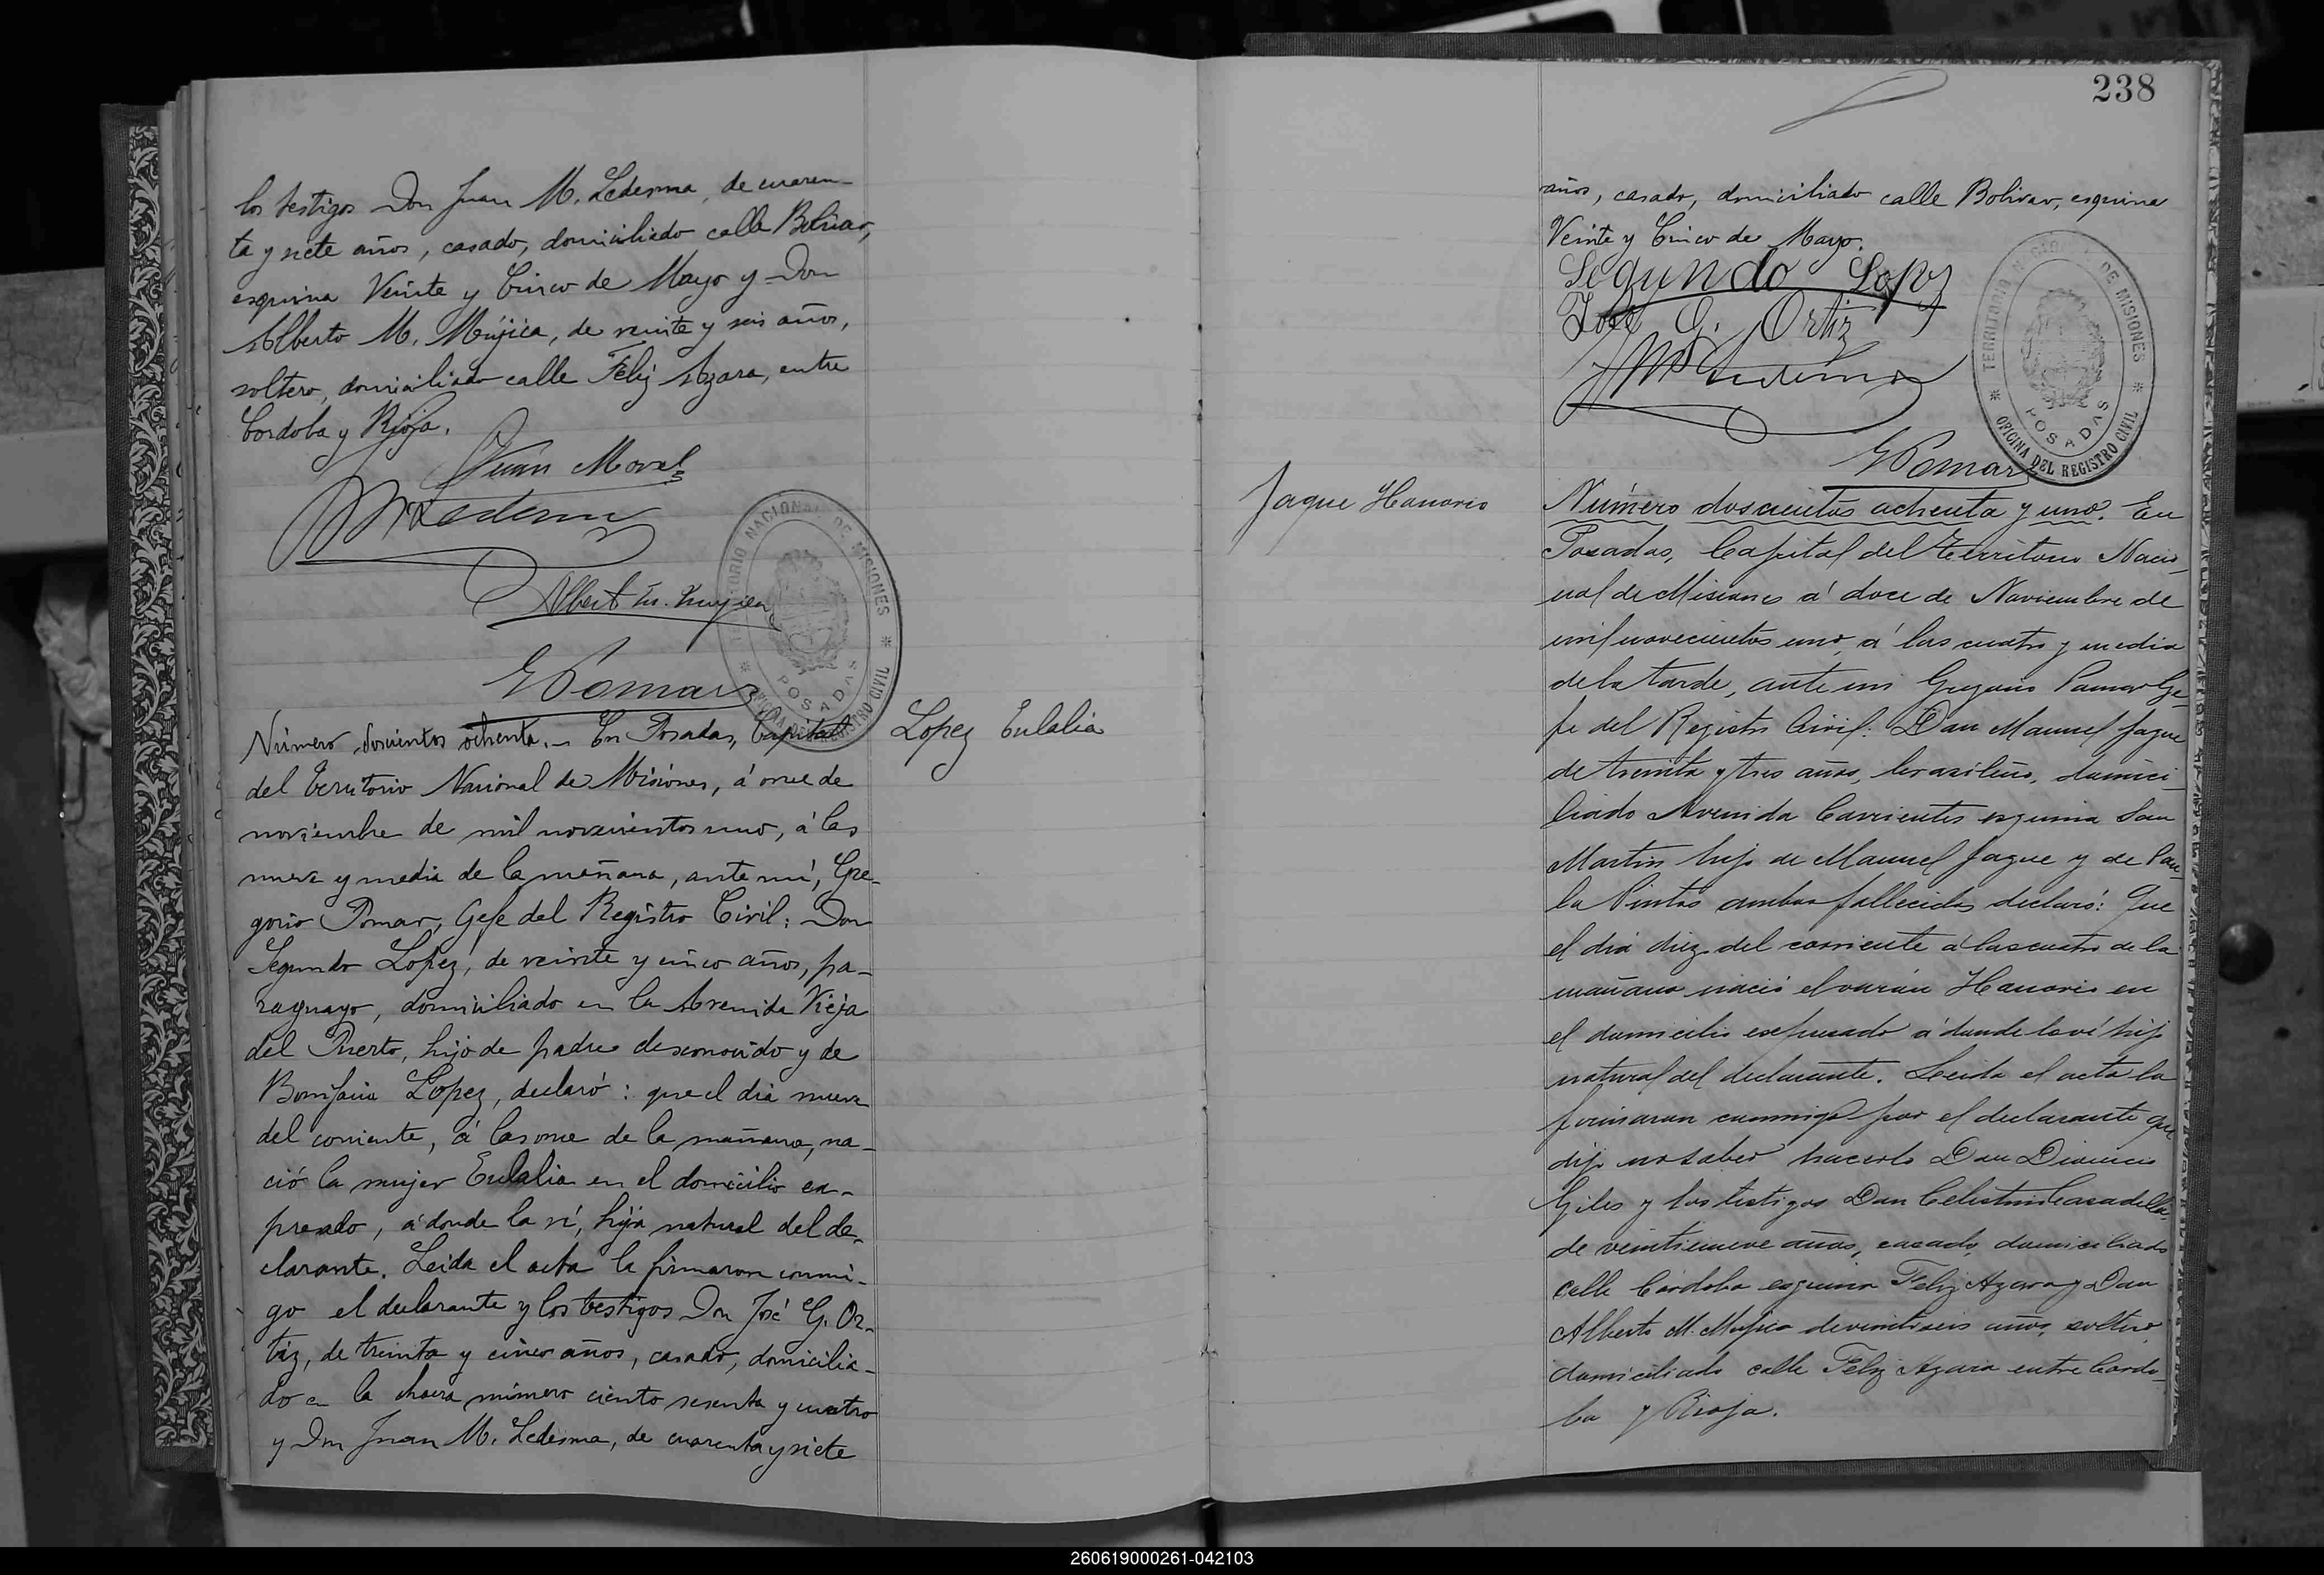 los testigos Don Juan M. Ledesma, de cuaren-
ta y siete años, casado, domiciliado calle Bolivar,
esquina Veinte y Cinco de Mayo y Don
Alberto M. Mujica, de veinte y seis años,
soltero, domiciliado calle Feliz Azara, entre
Cordoba y Rioja.
Juan Moral
JM Ledesma
Albert M. Mujica
G Pomar
TERRITORIO NACIONAL DE MISIONES
POSADAS
OFICINA DEL REGISTRO CIVIL
Lopez Eulalia
Número doscientos ochenta. - En Posadas, Capital
del Territorio Nacional de Misiones, á once de
noviembre de mil novecientos uno, á las
nueve y media de la mañana, ante mí, Gre-
gorio Pomar, Gefe del Registro Civil: Don
Segundo Lopez, de veinte y cinco años, pa-
raguayo, domiciliado en la Avenida Vieja
del Puerto, hijo de padre desconocido y de
Bonifacia Lopez, declaró: que el dia nueve
del corriente, á las once de la mañana, na-
ció la mujer Eulalia en el domicilio ex-
presado, á donde la ví, hija natural del de-
clarante. Leida el acta la firmaron conmi-
go el declarante y los testigos Don José G. Or-
tiz, de treinta y cinco años, casado, domicilia-
do en la chacra número ciento sesenta y cuatro
y Don Juan M. Ledesma, de cuarenta y siete
238
años, casado, domiciliado calle Bolivar, esquina
Veinte y Cinco de Mayo.
Segundo Lopz
José G. Ortiz
JM Ledesma
G Pomar
TERRITORIO NACIONAL DE MISIONES
POSADAS
OFICINA DEL REGISTRO CIVIL
Jaque Hanorio
Número doscientos ochenta y uno. En
Posadas, Capital del Territorio Nacio-
nal de Misiones á doce de Noviembre de
mil novecientos uno, á las cuatro y media
de la tarde, ante mi Gregorio Pomar Ge-
fe del Registro Civil: Don Manuel Jaque
de treinta y tres años, brasileño, domici-
liado Avenida Corrientes esquina San
Martin hijo de Manuel Jaque y de Pau-
la Pintos ambos fallecidos declaró: Que
el dia diez del corriente á las cuatro de la
mañana nació el varón Hanorio en
el domicilio espresado á donde lo ví hijo
natural del declarante. Leida el acta la
firmaron conmigo por el declarante que
dijo no saber hacerlo Don Dionicio
Giles y los testigos Don Celestino Casadella
de veintinueve años, casado, domiciliado
calle Córdoba esquina Feliz Azara y Don
Alberto M. Mujica de veintiseis años, soltero,
domiciliado calle Feliz Azara entre Cordo-
ba y Rioja.
260619000261-042103